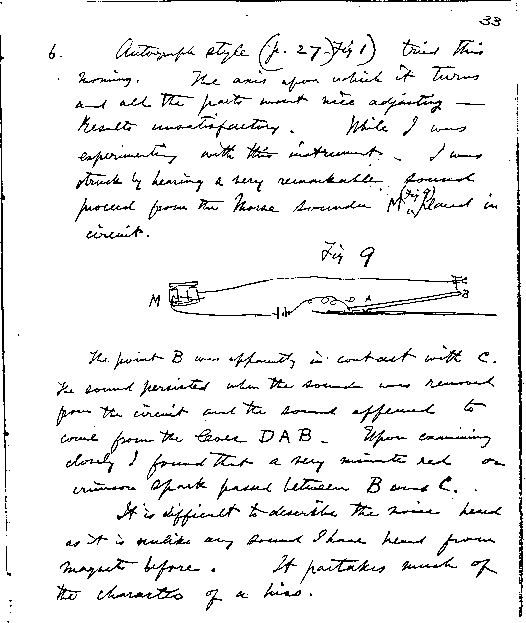 33
6. Autograph style (p. 27, Fig 1) tried this
morning. The axis upon which it turns
and all the parts want nice adjusting —
Results unsatisfactory. While I was
experimenting with this instrument - I was
struck by hearing a very remarkable sound
proceed from the Morse sounder M (Fig 9) placed in
circuit.
Fig 9
M D A B
The point B was apparently in contact with C.
The sound persisted when the sounder was removed
from the circuit and the sound appeared to
come from the lever DAB. Upon examining
closely I found that a very minute red or
crimson spark passed between B and C.
It is difficult to describe the noise heard
as it is unlike any sound I have heard from
magnets before. It partakes much of
the character of a hiss.